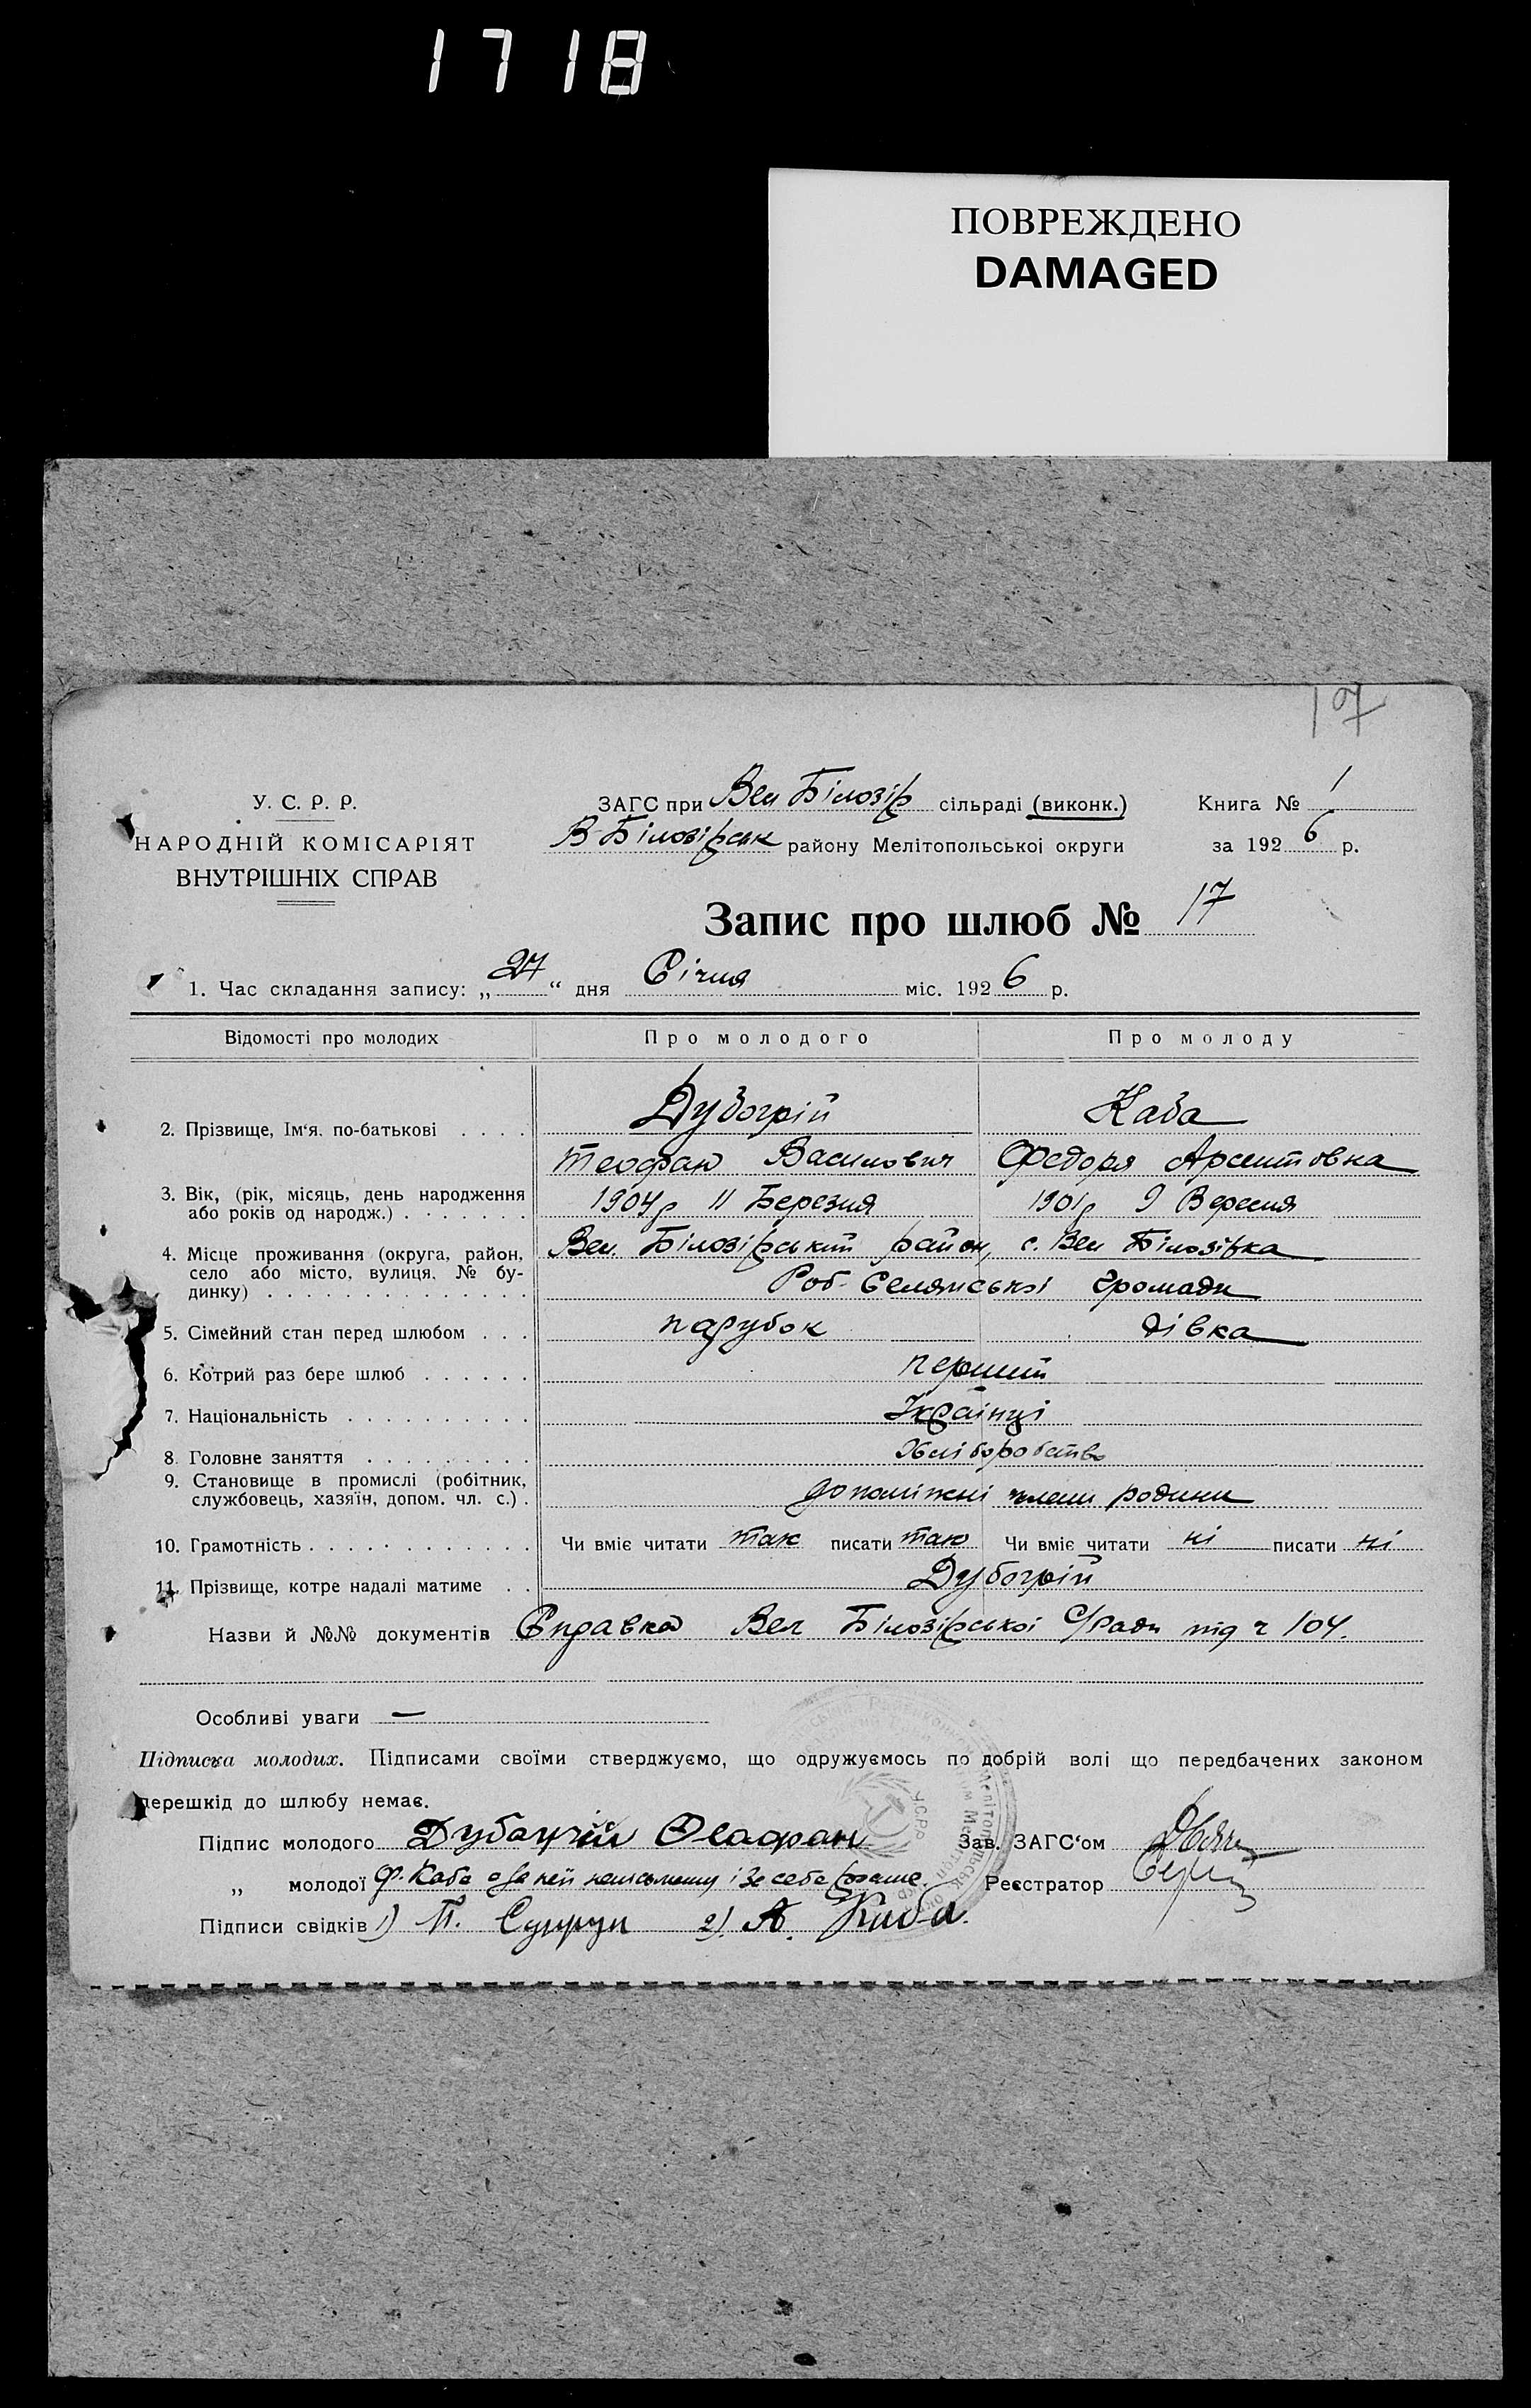 1718
ПОВРЕЖДЕНО
DAMAGED
17
У. С. Р. Р.
НАРОДНІЙ КОМІСАРІЯТ
ВНУТРІШНІХ СПРАВ
ЗАГС при Вел Білозір сільраді (виконк.)
В-Білозірськ району Мелітопольськоі округи
Книга № 1
за 1926 р.
Запис про шлюб № 17
1. Час складання запису: „27“ дня Січня міс. 1926 р.
Відомості про молодих Про молодого Про молоду
2. Прізвище, Ім'я. по-батькові . . . . Дубогрій Каба
Теофан Василович Федоря Арсентовка
3. Вік, (рік, місяць, день народження
або років од народж.) . . . . . . . 1904р 11 Березня 1901р 9 Вересня
4. Місце проживання (округа, район,
село або місто, вулиця, № бу-
динку) . . . . . . . . . . . . . .
Вел. Білозірський район, с. Вел Білозірка
Роб-Селянської громади
5. Сімейний стан перед шлюбом . . . парубок дівка
6. Котрий раз бере шлюб . . . . . . перший
7. Національність . . . . . . . . . . Українці
8. Головне заняття . . . . . . . . . Хліборобство
9. Становище в промислі (робітник,
службовець, хазяїн, допом. чл. с.) . допоміжні члени родини
10. Грамотність . . . . . . . . . . . . Чи вміє читати так писати так Чи вміє читати ні писати ні
11. Прізвище, котре надалі матиме . . Дубогрій
Назви й №№ документів Справка Вел Білозірської С/Ради під ч 104.
Особливі уваги —
Підписка молодих. Підписами своїми стверджуємо, що одружуємось по добрій волі що передбачених законом
перешкід до шлюбу немає.
Підпис молодого Дубагрій Феофан Зав. ЗАГС'ом
„ молодої Ф. Каба а за неї неписьменну і за себе Реєстратор
Підписи свідків 1) П. Супрун 2). А. Каба.